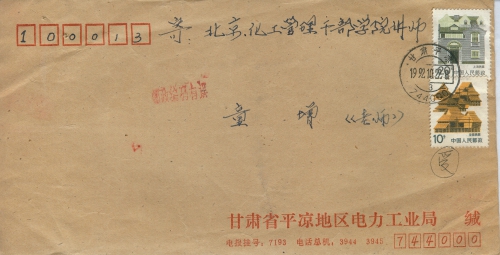 100013 寄: 北京.化工管理干部学院讲师
童 增 《老师》
甘肃平凉
1992.10.22.
7440
20分
中国人民邮政
10分
中国人民邮政
甘肃省平凉地区电力工业局 缄
电报挂号: 7193 电话总机: 3944 3945 744000